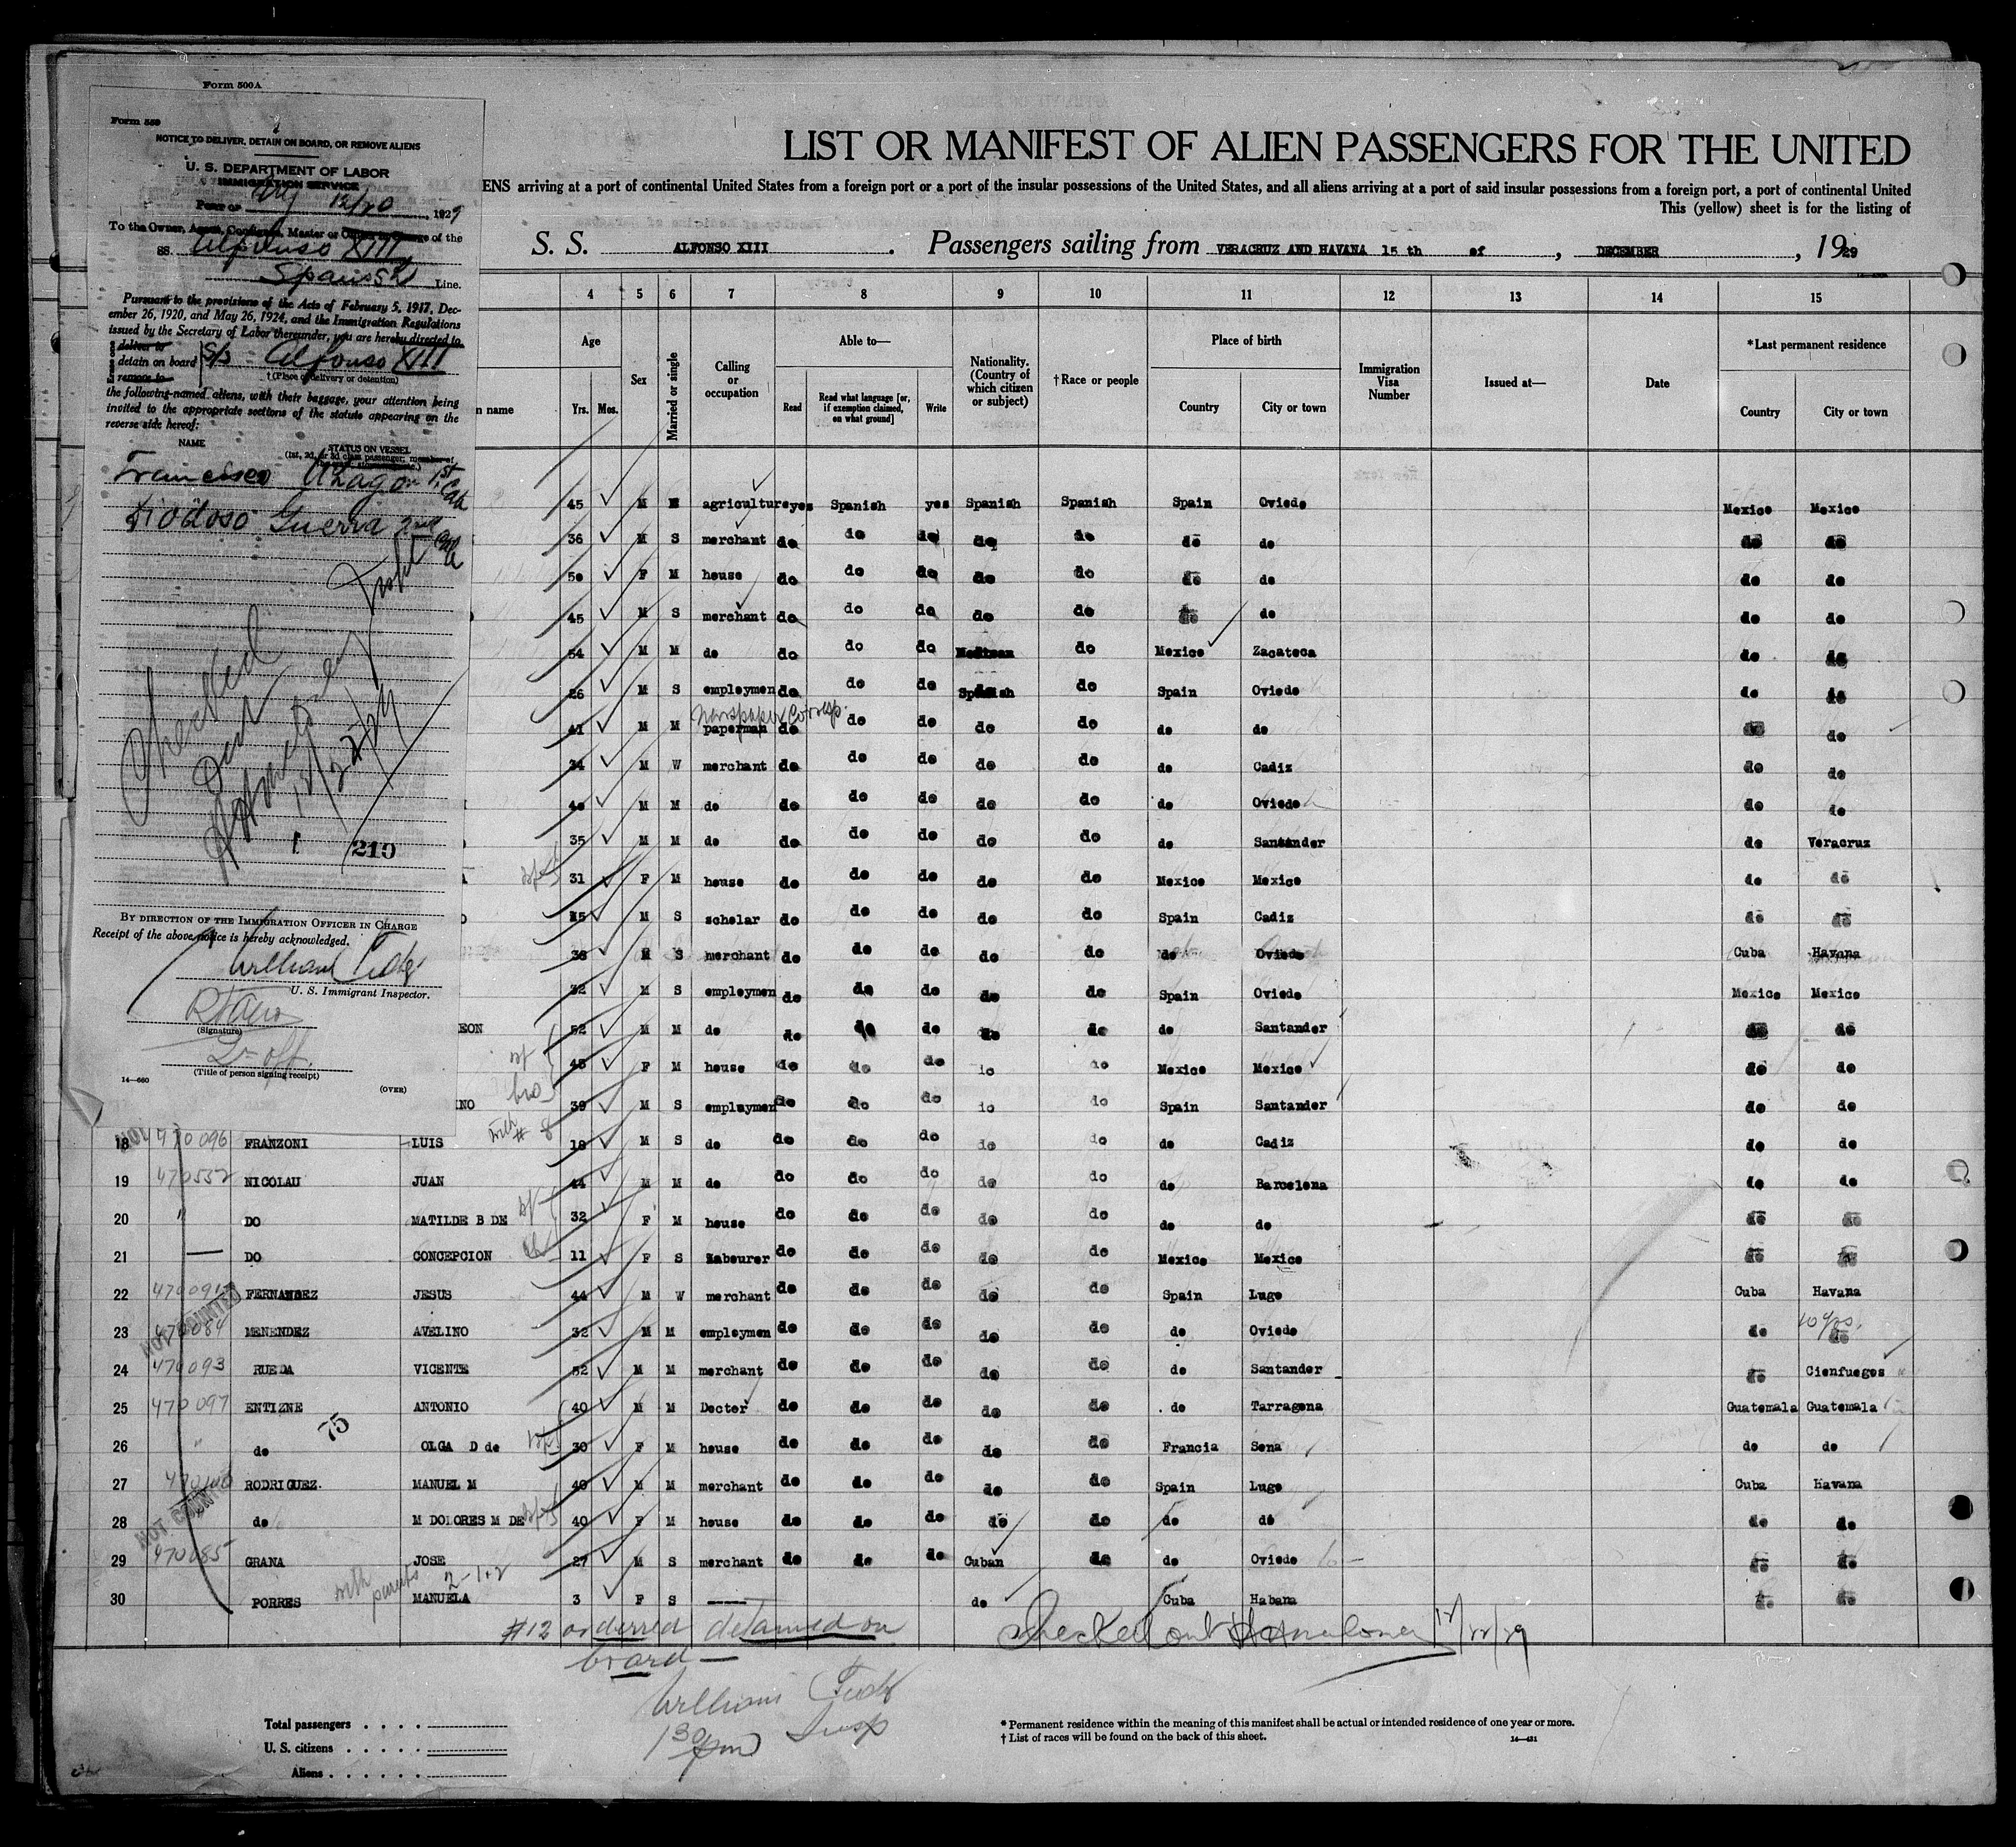 Form 500A
Form 539
NOTICE TO DELIVER, DETAIN ON BOARD, OR REMOVE ALIENS
U. S. DEPARTMENT OF LABOR
IMMIGRATION SERVICE
PORT OF NY 12/20, 1929
To the Owner, Agent, Consignee, Master or Officer in Charge of the
SS. Alfonso XIII
Spanish Line.
Pursuant to the provisions of the Acts of February 5, 1917, Dec-
ember 26, 1920, and May 26, 1924, and the Immigration Regulations
issued by the Secretary of Labor thereunder, you are hereby directed to
deliver to
detain on board S/S Alfonso XIII
remove to
†(Place of delivery or detention)
the following-named aliens, with their baggage, your attention being
invited to the appropriate sections of the statute appearing on the
reverse side hereof:
NAME STATUS ON VESSEL
(1st, 2d, or 3d class passenger, member of
Francisco Aragon 1st Cab
Guerra 2nd Cab
Checked Out
12/22/29
Insp
1 / 210
BY DIRECTION OF THE IMMIGRATION OFFICER IN CHARGE
Receipt of the above notice is hereby acknowledged.
William
U. S. Immigrant Inspector.
(Signature)
(Title of person signing receipt)
14—660 (OVER)
LIST OR MANIFEST OF ALIEN PASSENGERS FOR THE UNITED
ENS arriving at a port of continental United States from a foreign port or a port of the insular possessions of the United States, and all aliens arriving at a port of said insular possessions from a foreign port, a port of continental United
This (yellow) sheet is for the listing of
S. S. ALFONSO XIII. Passengers sailing from VERACRUZ AND HAVANA 15 th of, DECEMBER, 1929
4 5 6 7 8 9 10 11 12 13 14 15
n name
Age Yrs. Mos.
Sex
Married or single
Calling or occupation
Able to— Read Read what language [or, if exemption claimed, on what ground] Write
Nationality. (Country of which citizen or subject)
†Race or people
Place of birth Country City or town
Immigration Visa Number
Issued at—
Date
*Last permanent residence Country City or town
45 M agriculture yes Spanish yes Spanish Spanish Spain Oviedo Mexico Mexico
36 M S merchant do do do do do do do do do
50 F M house do do do do do do do do do
45 M S merchant do do do do do do do do do
54 M M do do do do do Mexico Zacateca do do
26 M S employmen do do do Spanish do Spain Oviedo do do
Newspaper Corresp.
41 M M paperman do do do do do do do do do
34 M W merchant do do do do do do Cadiz do do
40 M M do do do do do do do Oviedo do do
35 M M do do do do do do do Santander do Veracruz
31 F M house do do do do do Mexico Mexico do do
M S scholar do do do do do Spain Cadiz do do
38 M S merchant do do do do do do Oviedo Cuba Havana
32 M S employmen do do do do do Spain Oviedo Mexico Mexico
EON 52 M M do do do do do do do Santander do do
45 F M house do do do do do Mexico Mexico do do
INO 39 M S employmen do do do do do Spain Santander do do
with # 8
18 470096 FRANZONI LUIS 18 M S do do do do do do do Cadiz do do
19 470532 NICOLAU JUAN 44 M M do do do do do do do Barcelona do do
20 " DO MATILDE B DE 32 F M house do do do do do do do do do
21 — DO CONCEPCION 11 F S Labourer do do do do do Mexico Mexico do do
22 FERNANDEZ JESUS 44 M W merchant do do do do do Spain Lugo Cuba Havana
NOT COUNTED
23 470084 MENENDEZ AVELINO 32 M M employmen do do do do do do Oviedo do 10 yrs. do
24 470093 RUEDA VICENTE 52 M M merchant do do do do do do Santander do Cienfuegos
25 470097 ENTIZNE ANTONIO 40 M M Docter do do do do do do Tarragona Guatemala Guatemala
75
26 " de OLGA D de 30 F M house do do do do do Francia Sena do do
27 RODRIGUEZ. MANUEL M 40 M M merchant do do do do do Spain Lugo Cuba Havana
NOT COUNT
28 de M DOLORES M DE 40 F M house do do do do do do do do do
29 470085 GRANA JOSE 27 M S merchant do do do Cuban do do Oviedo do do
with parents 2-1+2
30 PORRES MANUELA 3 F S —— do Cuba Habana do do
#12 orderred detained on
board—
Checked out 12/22/29
William
Insp
1 30 pm
Total passengers . . . .
U. S. citizens . . . . .
Aliens . . . . . .
* Permanent residence within the meaning of this manifest shall be actual or intended residence of one year or more.
† List of races will be found on the back of this sheet.
14—431